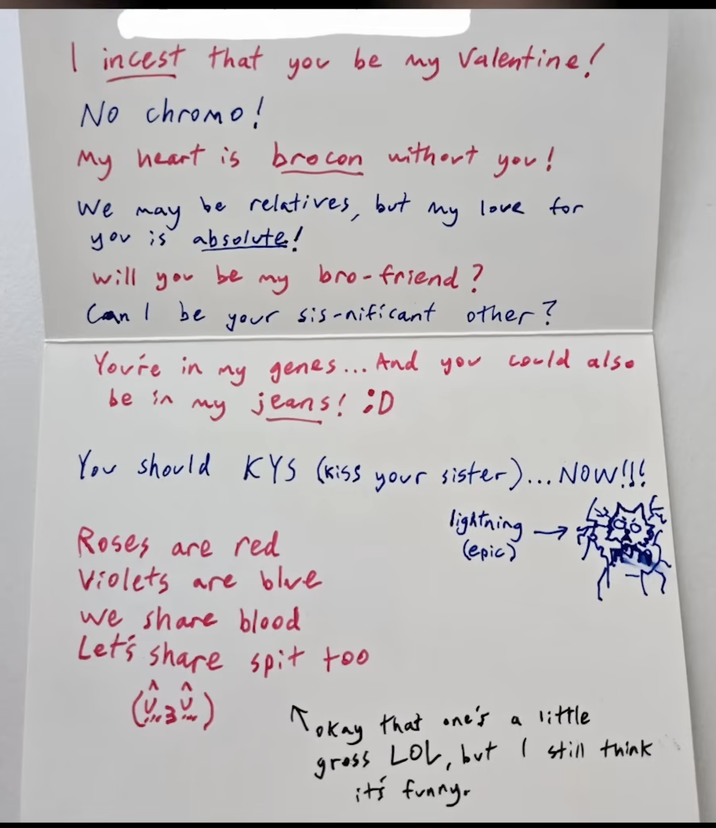 I incest that you be my Valentine!
No chromo!
My heart is brocon without you!
We may be relatives, but my love for
you is absolute!
Will you be my bro-friend?
Can I be your sis-nificant other?
You're in my genes... And you could also
be in my jeans! ;D
You should KYS (kiss your sister)... NOW!!!
lightning →
(epic)
Roses are red
Violets are blue
We share blood
Let's share spit too
okay that one's a little
gross LOL, but I still think
it's funny.